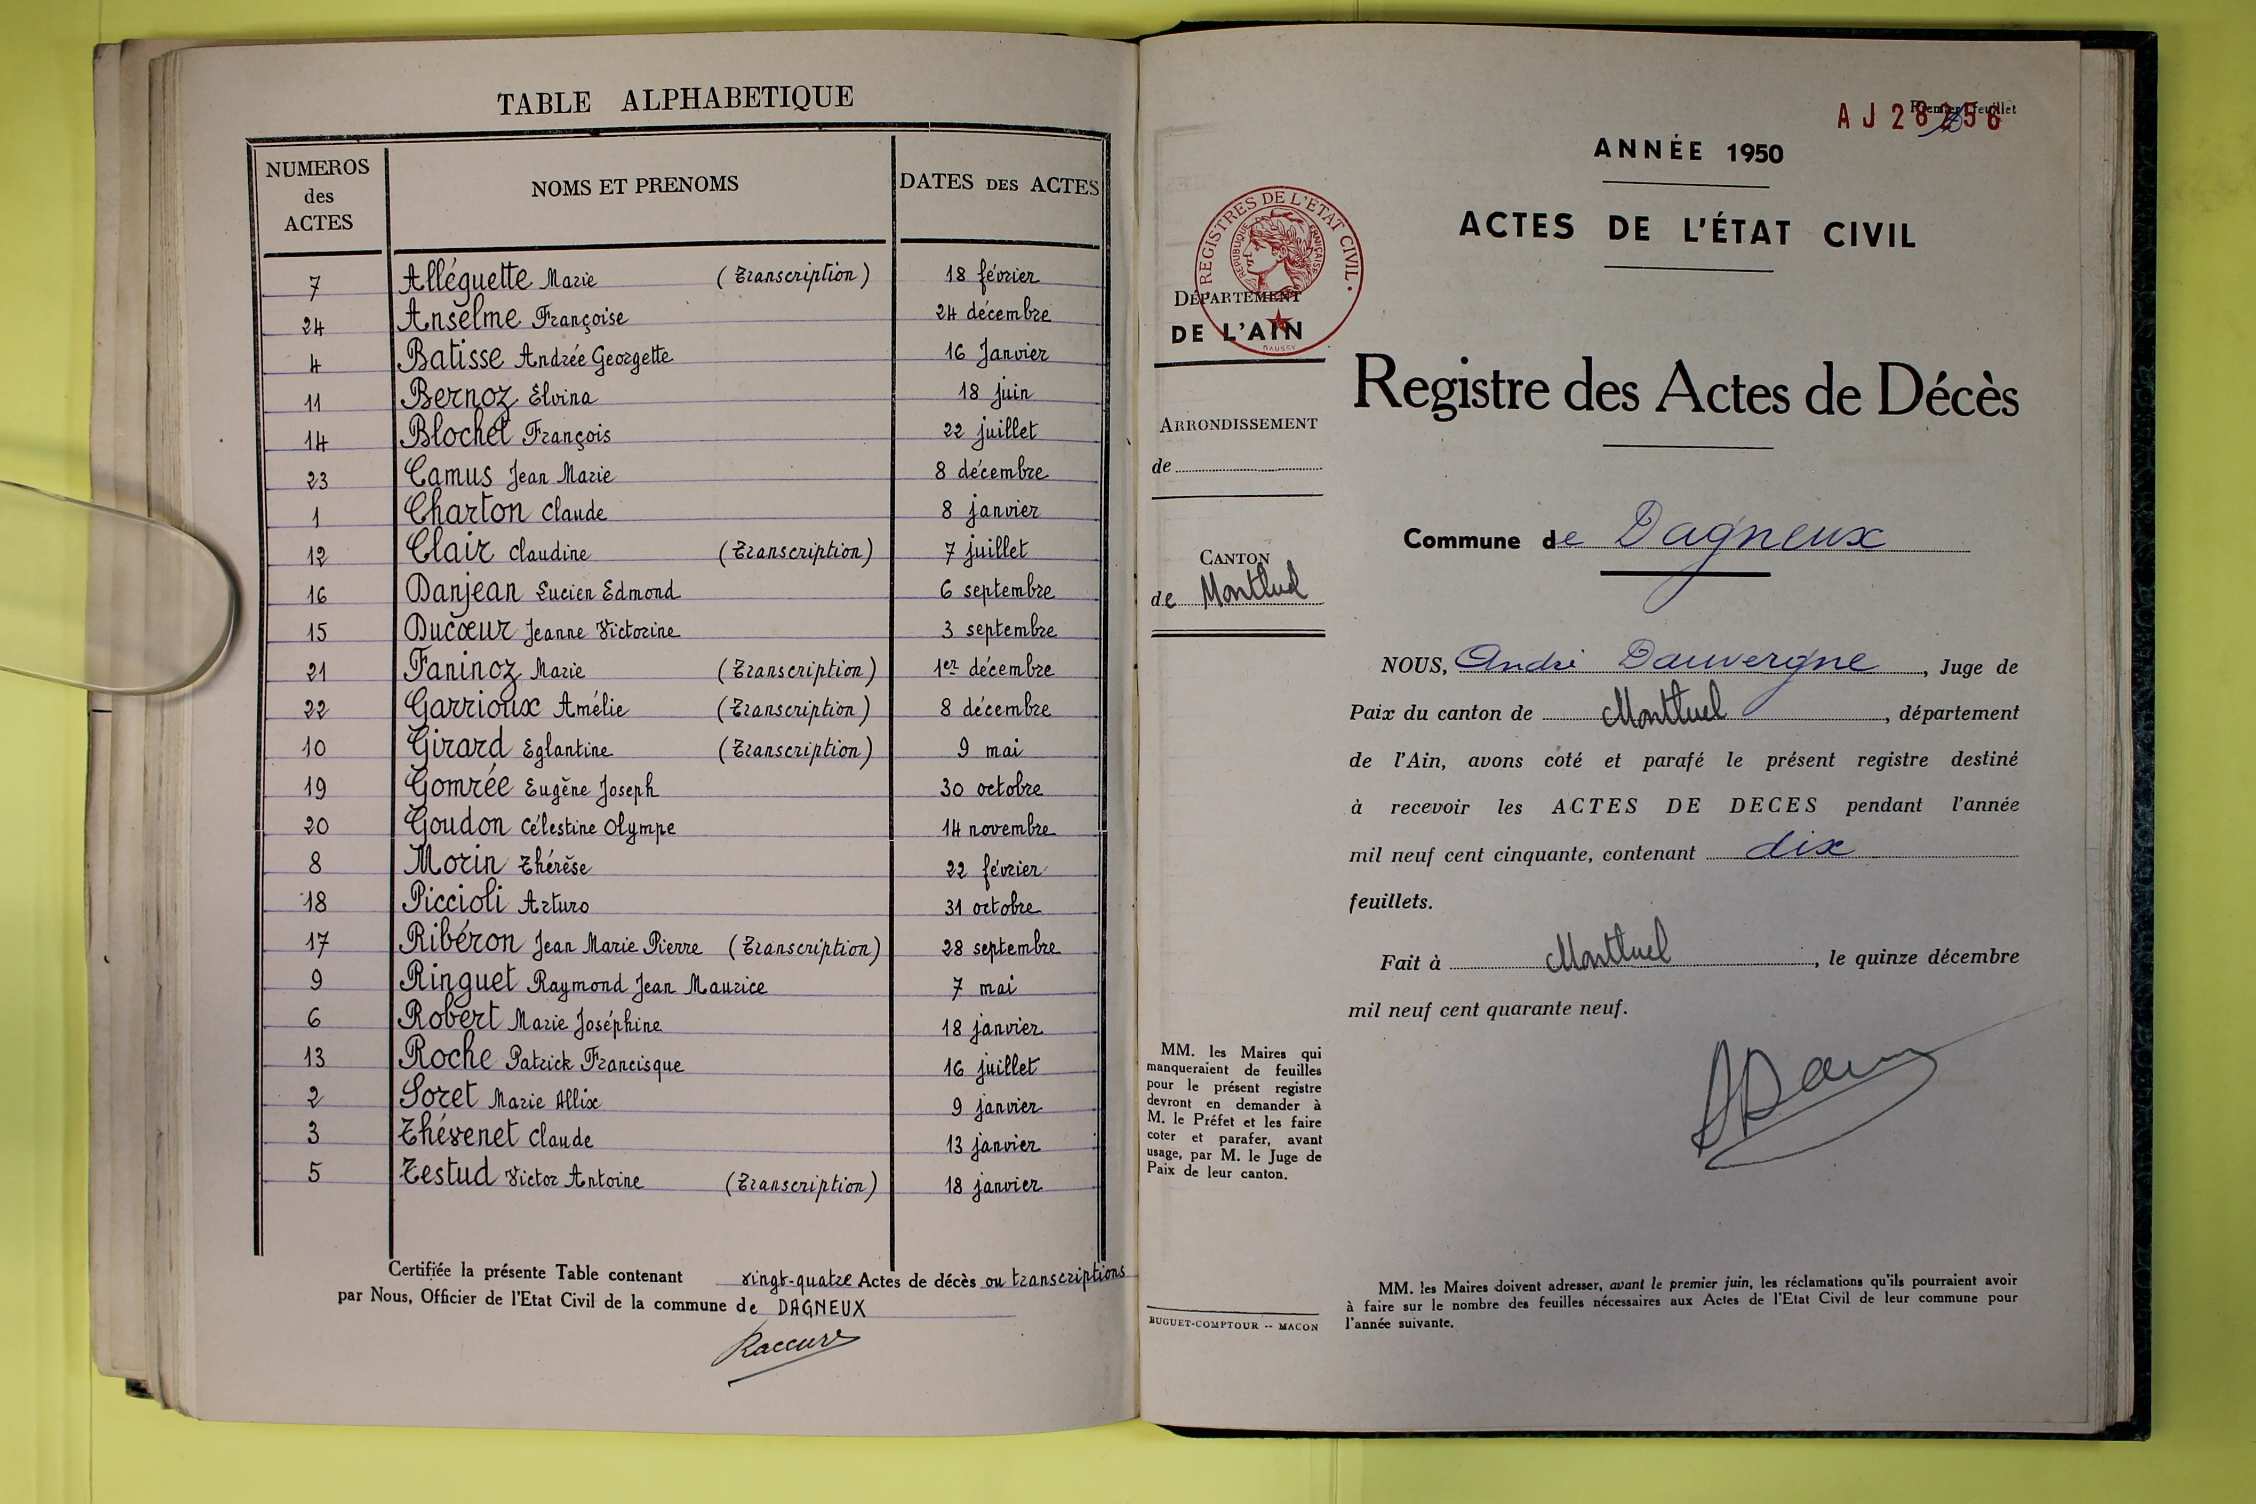 TABLE ALPHABETIQUE
NUMEROS des ACTES NOMS ET PRENOMS DATES DES ACTES
7 Alléguette Marie (Transcription) 18 février
24 Anselme Françoise 24 décembre
4 Batisse Andrée Georgette 16 Janvier
11 Bernoz Elvina 18 juin
14 Blochet François 22 juillet
23 Camus Jean Marie 8 décembre
1 Charton Claude 8 janvier
12 Clair Claudine (Transcription) 7 juillet
16 Danjean Lucien Edmond 6 septembre
15 Ducœur Jeanne Victorine 3 septembre
21 Faninoz Marie (Transcription) 1er décembre
22 Garrioux Amélie (Transcription) 8 décembre
10 Girard Eglantine (Transcription) 9 mai
19 Gomrée Eugène Joseph 30 octobre
20 Goudon Célestine Olympe 14 novembre
8 Morin Thérèse 22 février
18 Piccioli Arturo 31 octobre
17 Ribéron Jean Marie Pierre (Transcription) 28 septembre
9 Ringuet Raymond Jean Maurice 7 mai
6 Robert Marie Joséphine 18 janvier
13 Roche Patrick Francisque 16 juillet
2 Soret Marie Allix 9 janvier
3 Thévenet Claude 13 janvier
5 Testud Victor Antoine (Transcription) 18 janvier
Certifiée la présente Table contenant vingt-quatre Actes de décès ou transcriptions
par Nous, Officier de l'Etat Civil de la commune de DAGNEUX
Premier feuillet
AJ 28256
ANNÉE 1950
ACTES DE L'ÉTAT CIVIL
REGISTRES DE L'ETAT CIVIL.
REPUBLIQUE FRANÇAISE
DAUSSY
DÉPARTEMENT
DE L'AIN
Registre des Actes de Décès
ARRONDISSEMENT
de
Commune de Dagneux
CANTON
de Montluel
NOUS, André Dauvergne, Juge de
Paix du canton de Montluel, département
de l'Ain, avons coté et parafé le présent registre destiné
à recevoir les ACTES DE DECES pendant l'année
mil neuf cent cinquante, contenant dix
feuillets.
Fait à Montluel, le quinze décembre
mil neuf cent quarante neuf.
MM. les Maires qui
manqueraient de feuilles
pour le présent registre
devront en demander à
M. le Préfet et les faire
coter et parafer, avant
usage, par M. le Juge de
Paix de leur canton.
MM. les Maires doivent adresser, avant le premier juin, les réclamations qu'ils pourraient avoir
à faire sur le nombre des feuilles nécessaires aux Actes de l'Etat Civil de leur commune pour
l'année suivante.
BUGUET-COMPTOUR -- MACON